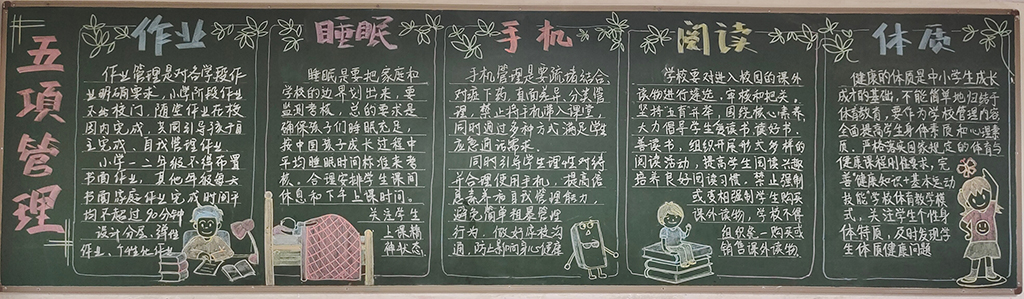 五項管理
作业
作业管理是对各学段作
业明确要求，小学阶段作业
不出校门，随堂作业在校
园内完成，共同引导孩子自
主完成、自我管理作业
小学一二年级不得布置
书面作业，其他年级每天
书面家庭作业完成时间平
均不超过90分钟
设计分层、弹性
作业、个性化作业
睡眠
睡眠是要把家庭和
学校的边界划出来，要
监测考核，总的要求是
确保孩子们睡眠充足，
我中国孩子成长过程中
平均睡眠时间标准来考
核。合理安排学生课间
休息和下午上课时间。
关注学生
上课精
神状态
手机
手机管理是要疏堵结合
对症下药，直面差异、分类管
理，禁止将手机带入课堂，
同时通过多种方式满足学生
应急通话需求。
同时引导学生理性对待
并合理使用手机，提高信
息素养和自我管理能力，
避免简单粗暴管理
行为，做好家校沟
通，防止影响身心健康
阅读
学校要对进入校园的课外
读物进行遴选，审核和把关，
坚持立育并举，围绕核心素养
大力倡导学生爱读书，读好书，
善读书，组织开展形式多样的
阅读活动，提高学生阅读兴趣
培养良好阅读习惯，禁止强制
或变相强制学生购买
课外读物，学校不得
组织统一购买或
销售课外读物
体质
健康的体质是中小学生成长
成才的基础，不能简单地归结于
体育教育，要作为学校管理内容
全面提高学生身体素质和心理素
质，严格落实国家规定的体育与
健康课程刚性要求，完
善"健康知识+基本运动
技能"学校体育教学模
式，关注学生个性身
体特质，及时发现学
生体质健康问题